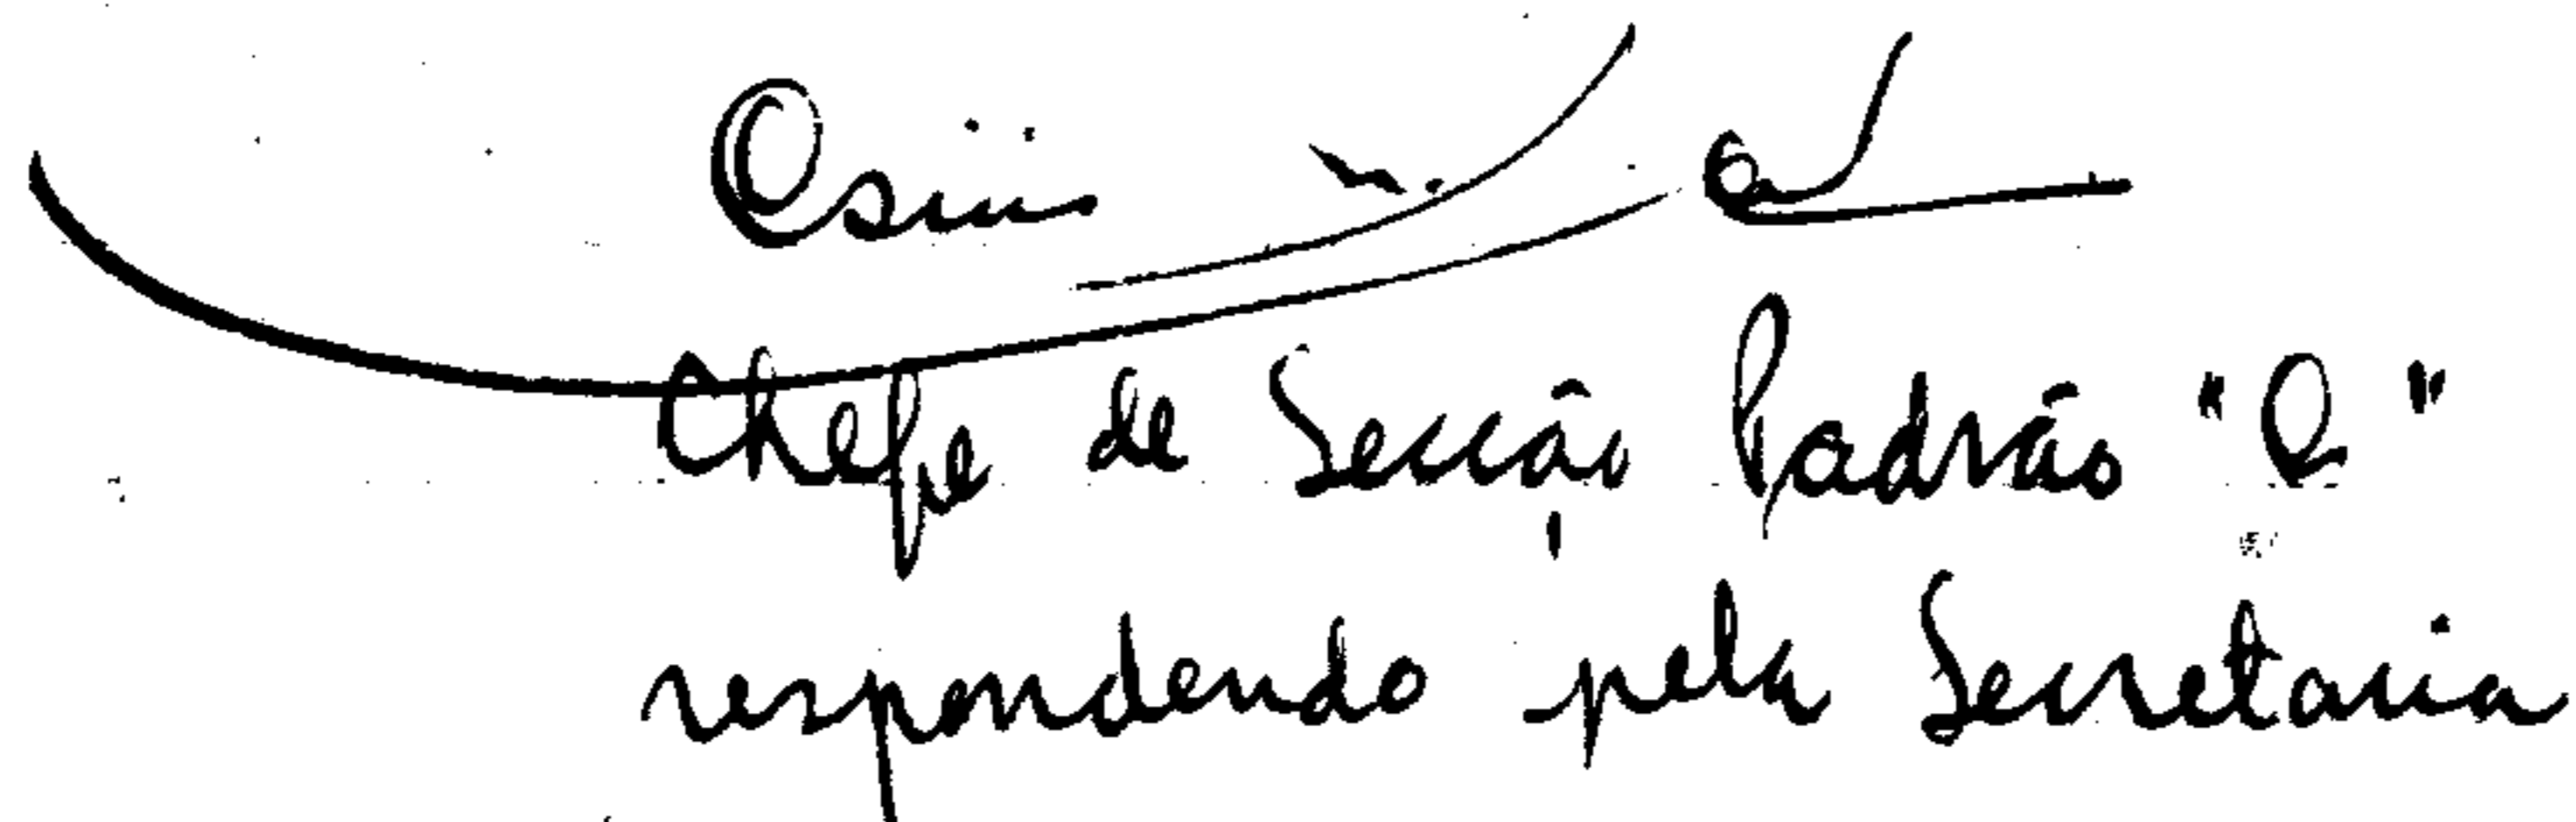 Chefe de Secção Padrão "Q"
respondendo pela Secretaria